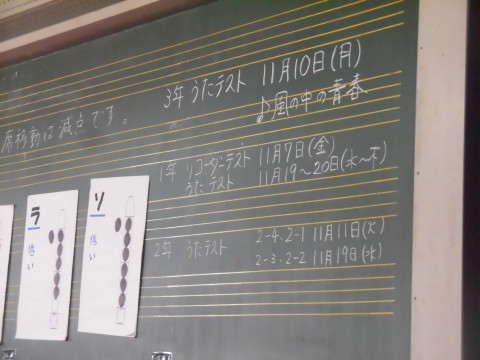 3年 うたテスト 11月10日(月)
♪風の中の青春
席移動は減点です。
1年 リコーダーテスト 11月7日(金)
うたテスト 11月19～20日(水～木)
2年 うたテスト 2-4.2-1 11月11日(火)
2-3.2-2 11月19日(水)
ラ
低い
ソ
低い